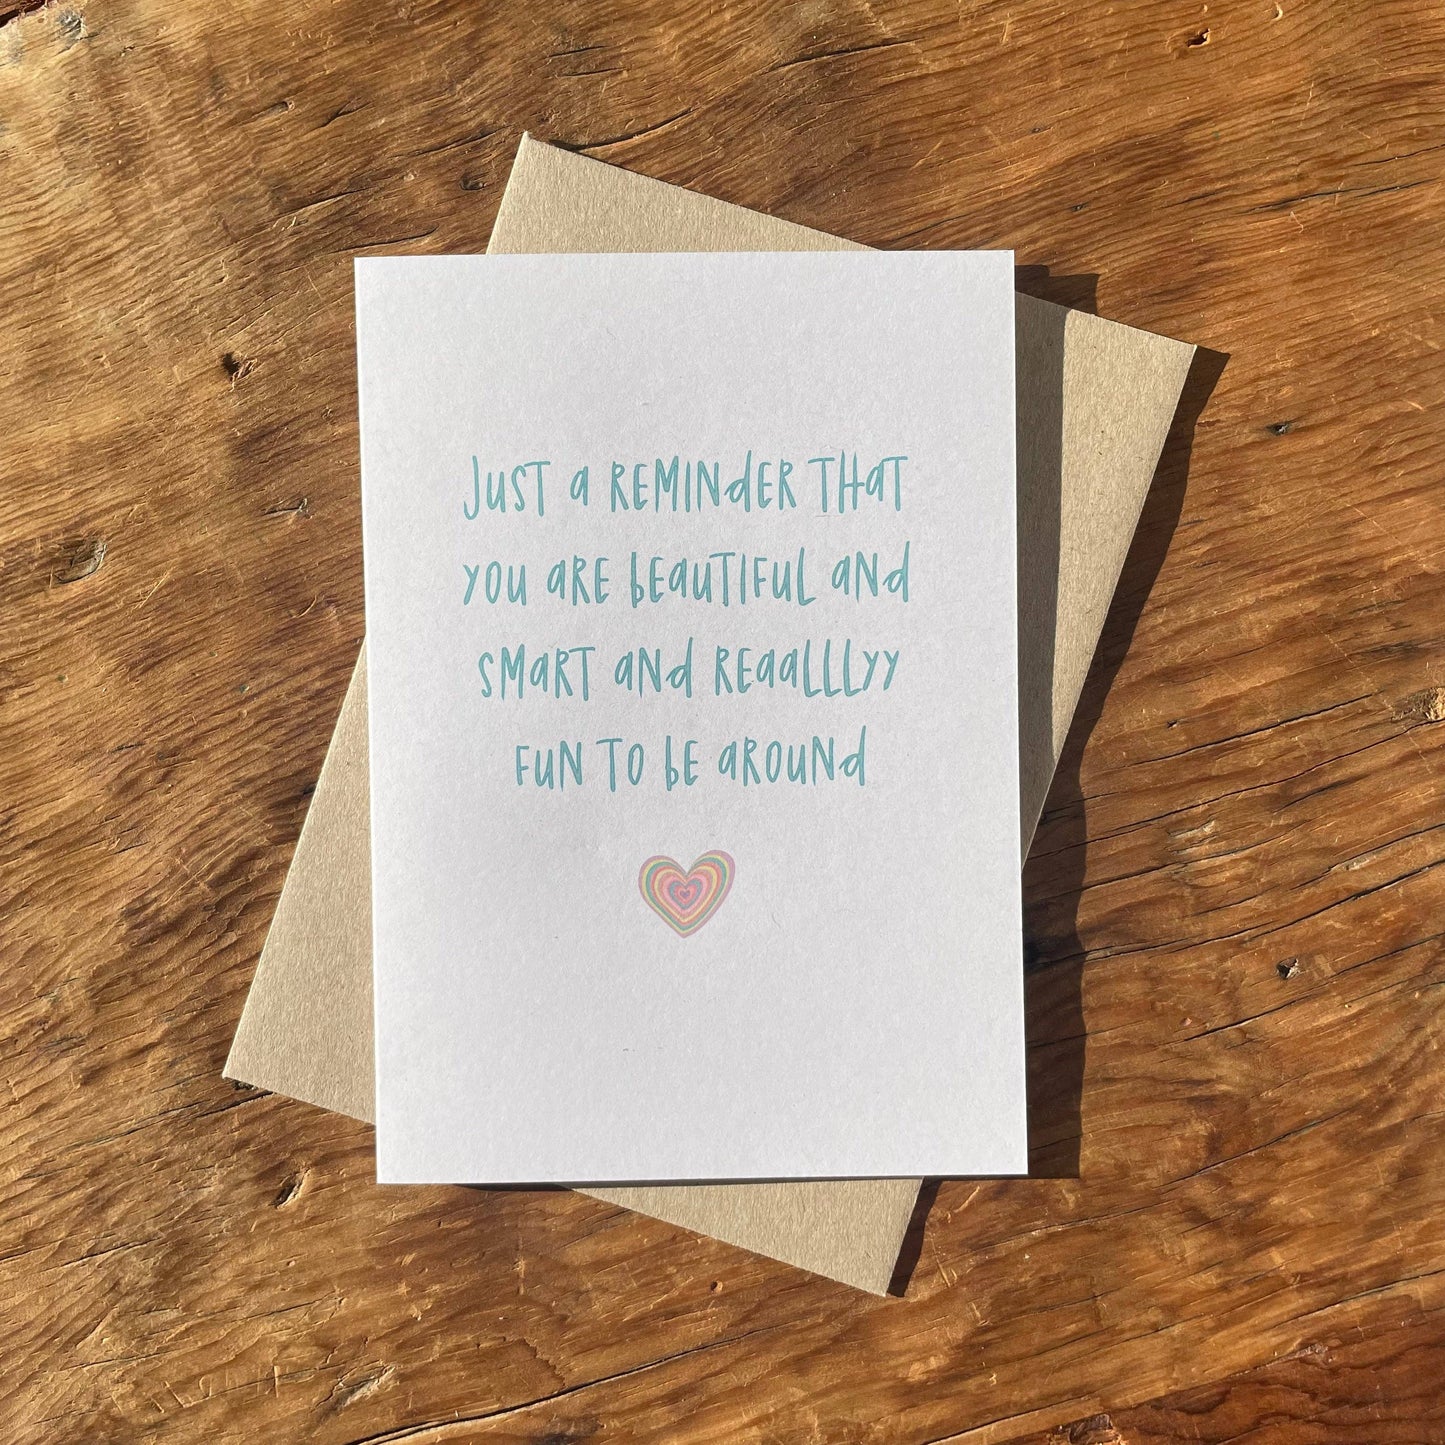 JUST a REMINdER THaT
YOU aRE bEaUTIFUL aNd
SMaRT aNd REaaLLLYY
FUN TO bE aROUNd